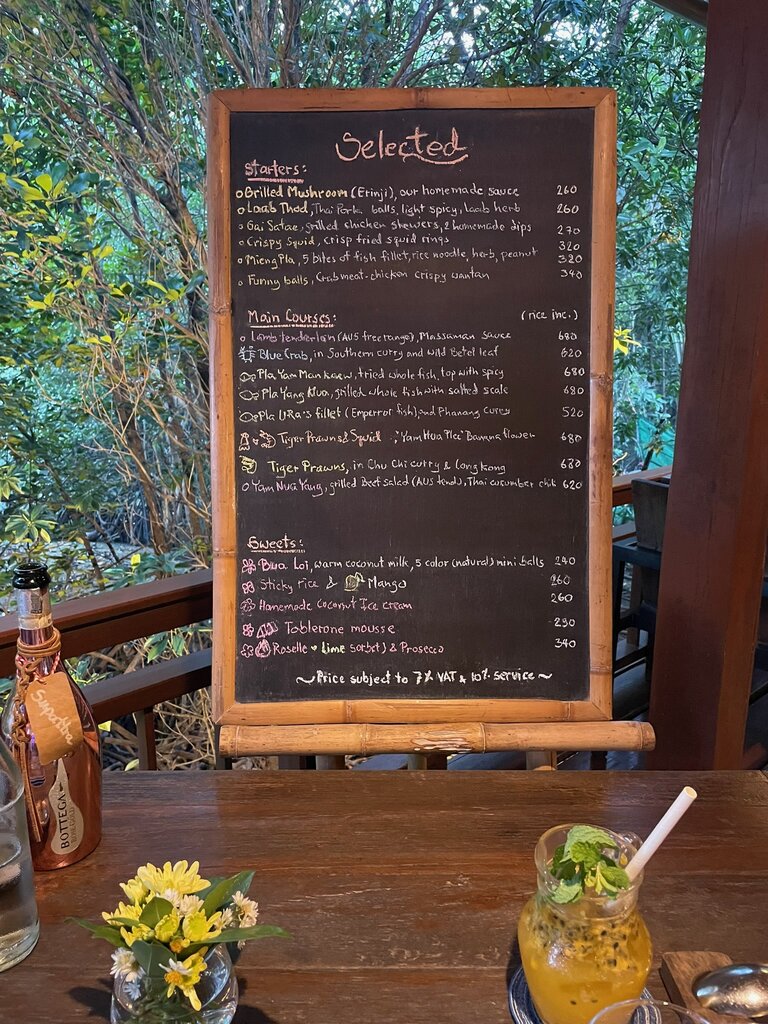 Selected
Starters:
Grilled Mushroom (Erinji), our homemade sauce 260
Laab Thod, Thai Pork balls, light spicy, Laab herb 260
Gai Satae, grilled chicken skewers, 2 homemade dips 270
Crispy Squid, crisp fried squid rings 320
Mieng Pla, 5 bites of fish fillet, rice noodle, herb, peanut 320
Funny balls, Crab meat-chicken crispy wantan 340
Main Courses: (rice inc.)
Lamb tenderloin (AUS free range), Massaman sauce 680
Blue Crab, in Southern curry and wild Betel leaf 620
Pla Yam Mankaew, fried whole fish, top with spicy 680
Pla Yang Klua, grilled whole fish with salted scale 680
Pla fillet (Emperror fish) and Phanang curry 520
Tiger Prawns & Squid "Yam Hua Plee" Banana flower 680
Tiger Prawns, in Chu Chi curry & Longkong 680
Yam Nua Yang, grilled Beef Salad (AUS tend), Thai cucumber chili 620
Sweets:
Bua Loi, warm coconut milk, 5 color (natural) mini balls 240
Sticky rice & Mango 260
Homemade Coconut Ice cream 260
Toblerone mousse 290
Roselle ♥ Lime sorbet) & Prosecco 340
~Price subject to 7% VAT & 10% service~
BOTTEGA